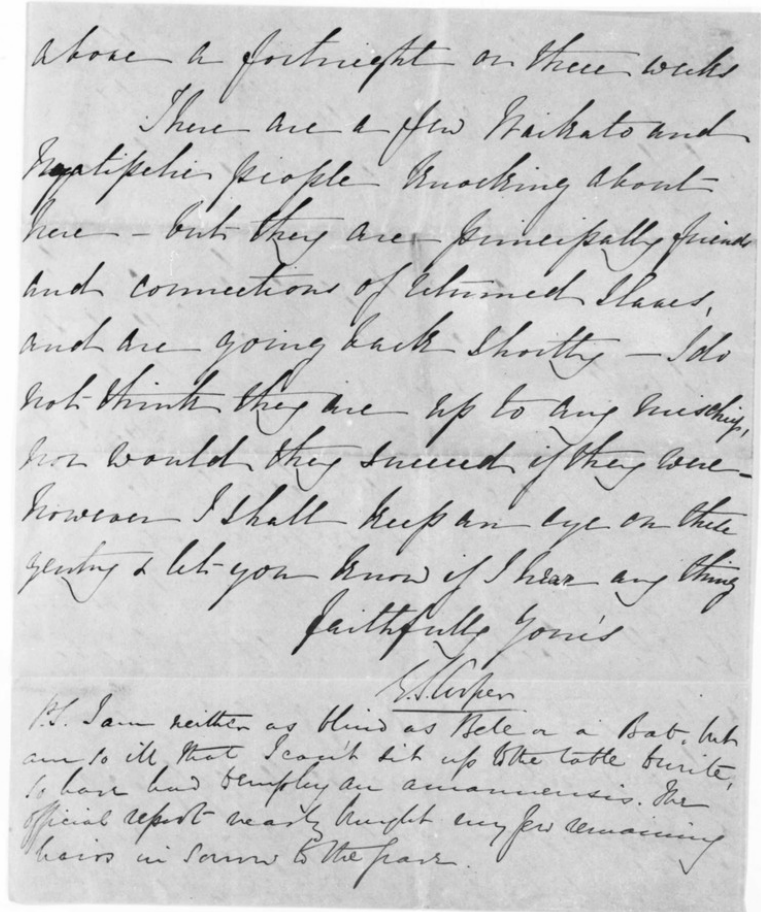 above a fortnight or three weeks
There are a few Waikato and
people knocking about
here - but they are principally friends
and connections of returned slaves,
and are going back shortly - I do
not think they are up to any mischief,
nor would they succeed if they were -
however I shall keep an eye on these
gentry & let you know if I hear any thing
faithfully yours
G.S. Cooper
P.S. I am neither as blind as Bele or a Bat, but
am so ill that I can't sit up to the table to write,
so have had to employ an amanuensis. The
official report nearly brought my few remaining
hairs in sorrow to the grave.